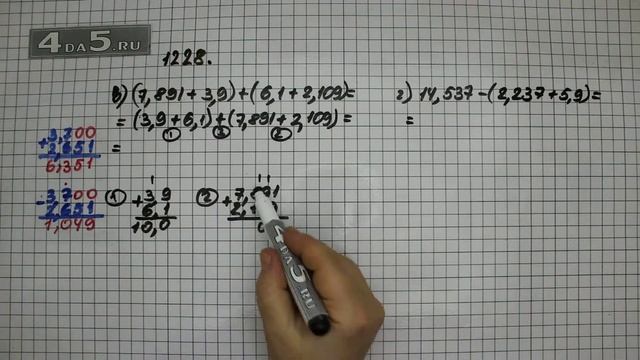 4DA5.RU
1228.
в) (7,891 + 3,9) + (6,1 + 2,109) =
= (3,9 + 6,1) + (7,891 + 2,109) =
① ③ ②
=
г) 14,537 - (2,237 + 5,9) =
=
+ 3,700
2,651
6,351
- 3,700
2,651
1,049
① 1
+ 3,9
6,1
10,0
② 1 1
4DA5.RU